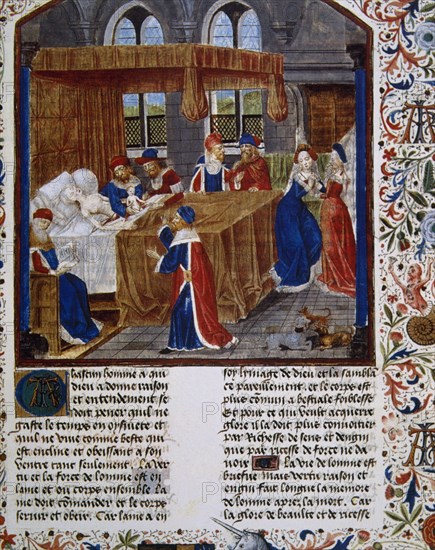 hascun homme a qui
dieu a donne raison
et entendement se
doit pener quil ne
gaste le temps en oysiuete et
quil ne viue comme beste qui
est encline et obeissant a son
ventre tant seulement. la ver
tu et la force de lomme est en
lame et ou corps ensemble. la
me doit comander et le corps
seruir et obeir. Car lame a en
soy lymage de dieu et la sambla
ce pareillement. et le corps est
plus comun a bestiale foiblesse
Et pour ce qui veult acquerir
glore il la doit plus conuoitier
par Richesse de sens et dengin
que par richesse de force ne da
uoir la vie de lomme est
briefue mais vertu raison et
engin fait longue la memore
de lomme apres la mort. Car
la glore de beaulte et de richesse